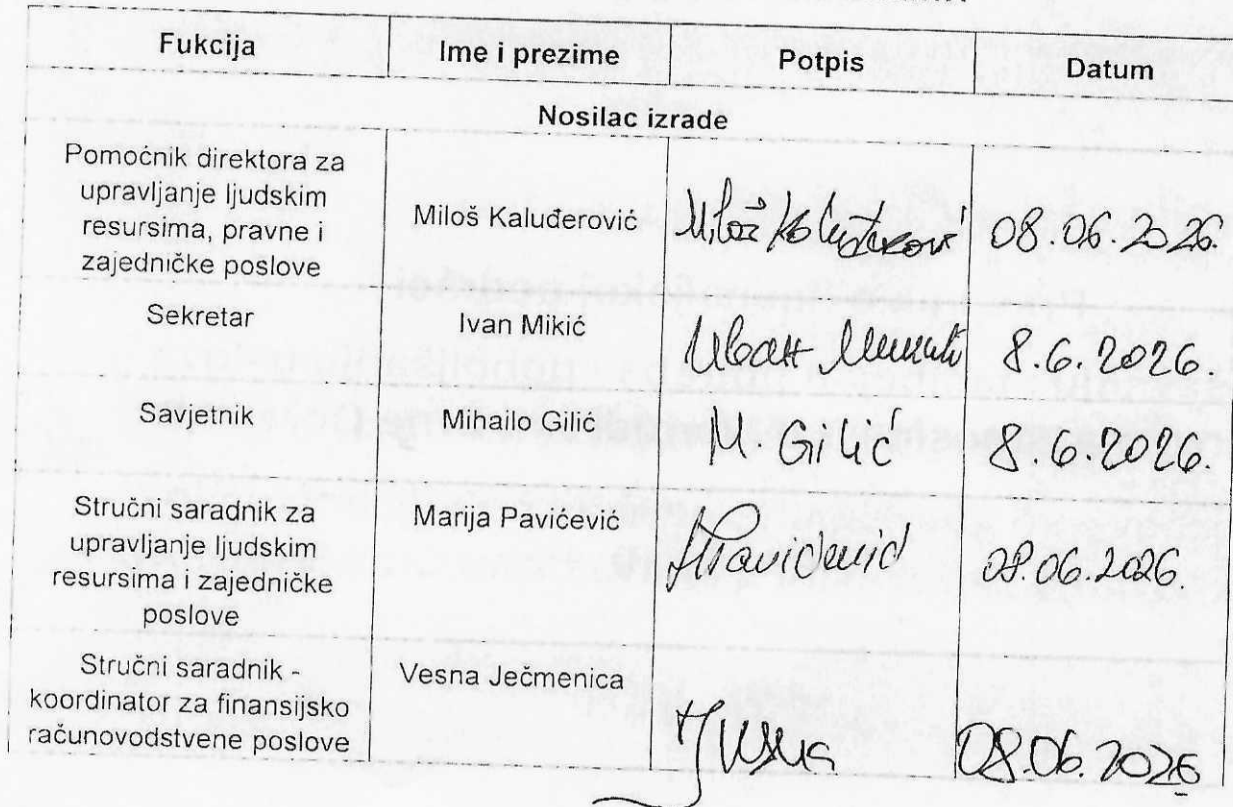 Fukcija Ime i prezime Potpis Datum
Nosilac izrade
Pomoćnik direktora za
upravljanje ljudskim
resursima, pravne i
zajedničke poslove
Miloš Kaluđerović
Miloš Kaluđerović
08.06.2026.
Sekretar
Ivan Mikić
Иван
8.6.2026.
Savjetnik
Mihailo Gilić
M. Gilić
8.6.2026.
Stručni saradnik za
upravljanje ljudskim
resursima i zajedničke
poslove
Marija Pavićević
08.06.2026.
Stručni saradnik -
koordinator za finansijsko
računovodstvene poslove
Vesna Ječmenica
08.06.2026